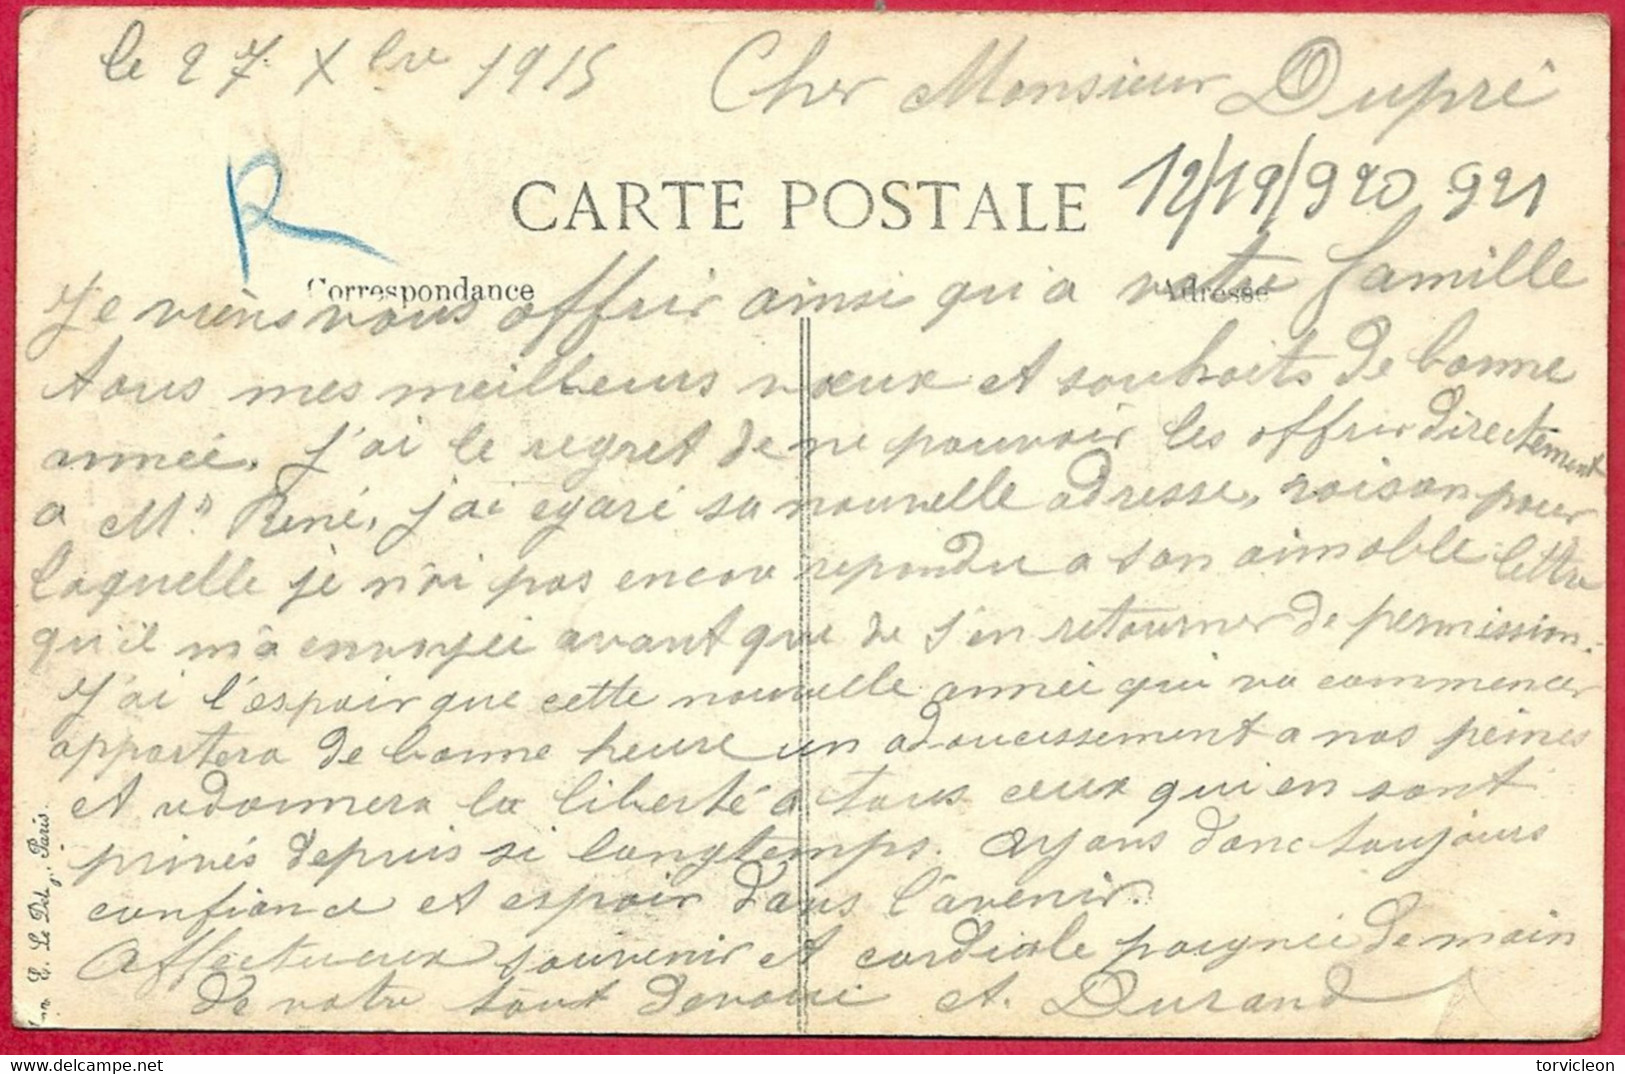 le 27 Xbre 1915 Cher Monsieur Dupré
R
CARTE POSTALE
12/19/920 921
Correspondance
Adresse
Je viens vous offrir ainsi qu'a votre famille
tous mes meilleurs vœux et souhaits de bonne
année. J'ai le regret de ne pouvoir les offrir directement
a Mr René, j'ai egaré sa nouvelle adresse, raison pour
laquelle je n'ai pas encore repondu a son aimable lettre
qu'il m'a envoyée avant que de s'en retourner de permission.
J'ai l'espoir que cette nouvelle année qui va commencer
apportera de bonne heure un adoucissement a nos peines
et redonnera la liberté a tous ceux qui en sont
privés depuis si longtemps. Ayons donc toujours
confiance et espoir dans l'avenir.
Affectueux souvenir et cordiale poignée de main
de votre tout devoué A. Durand
E. Le Deley, Paris.
torvicleon
delcampe.net